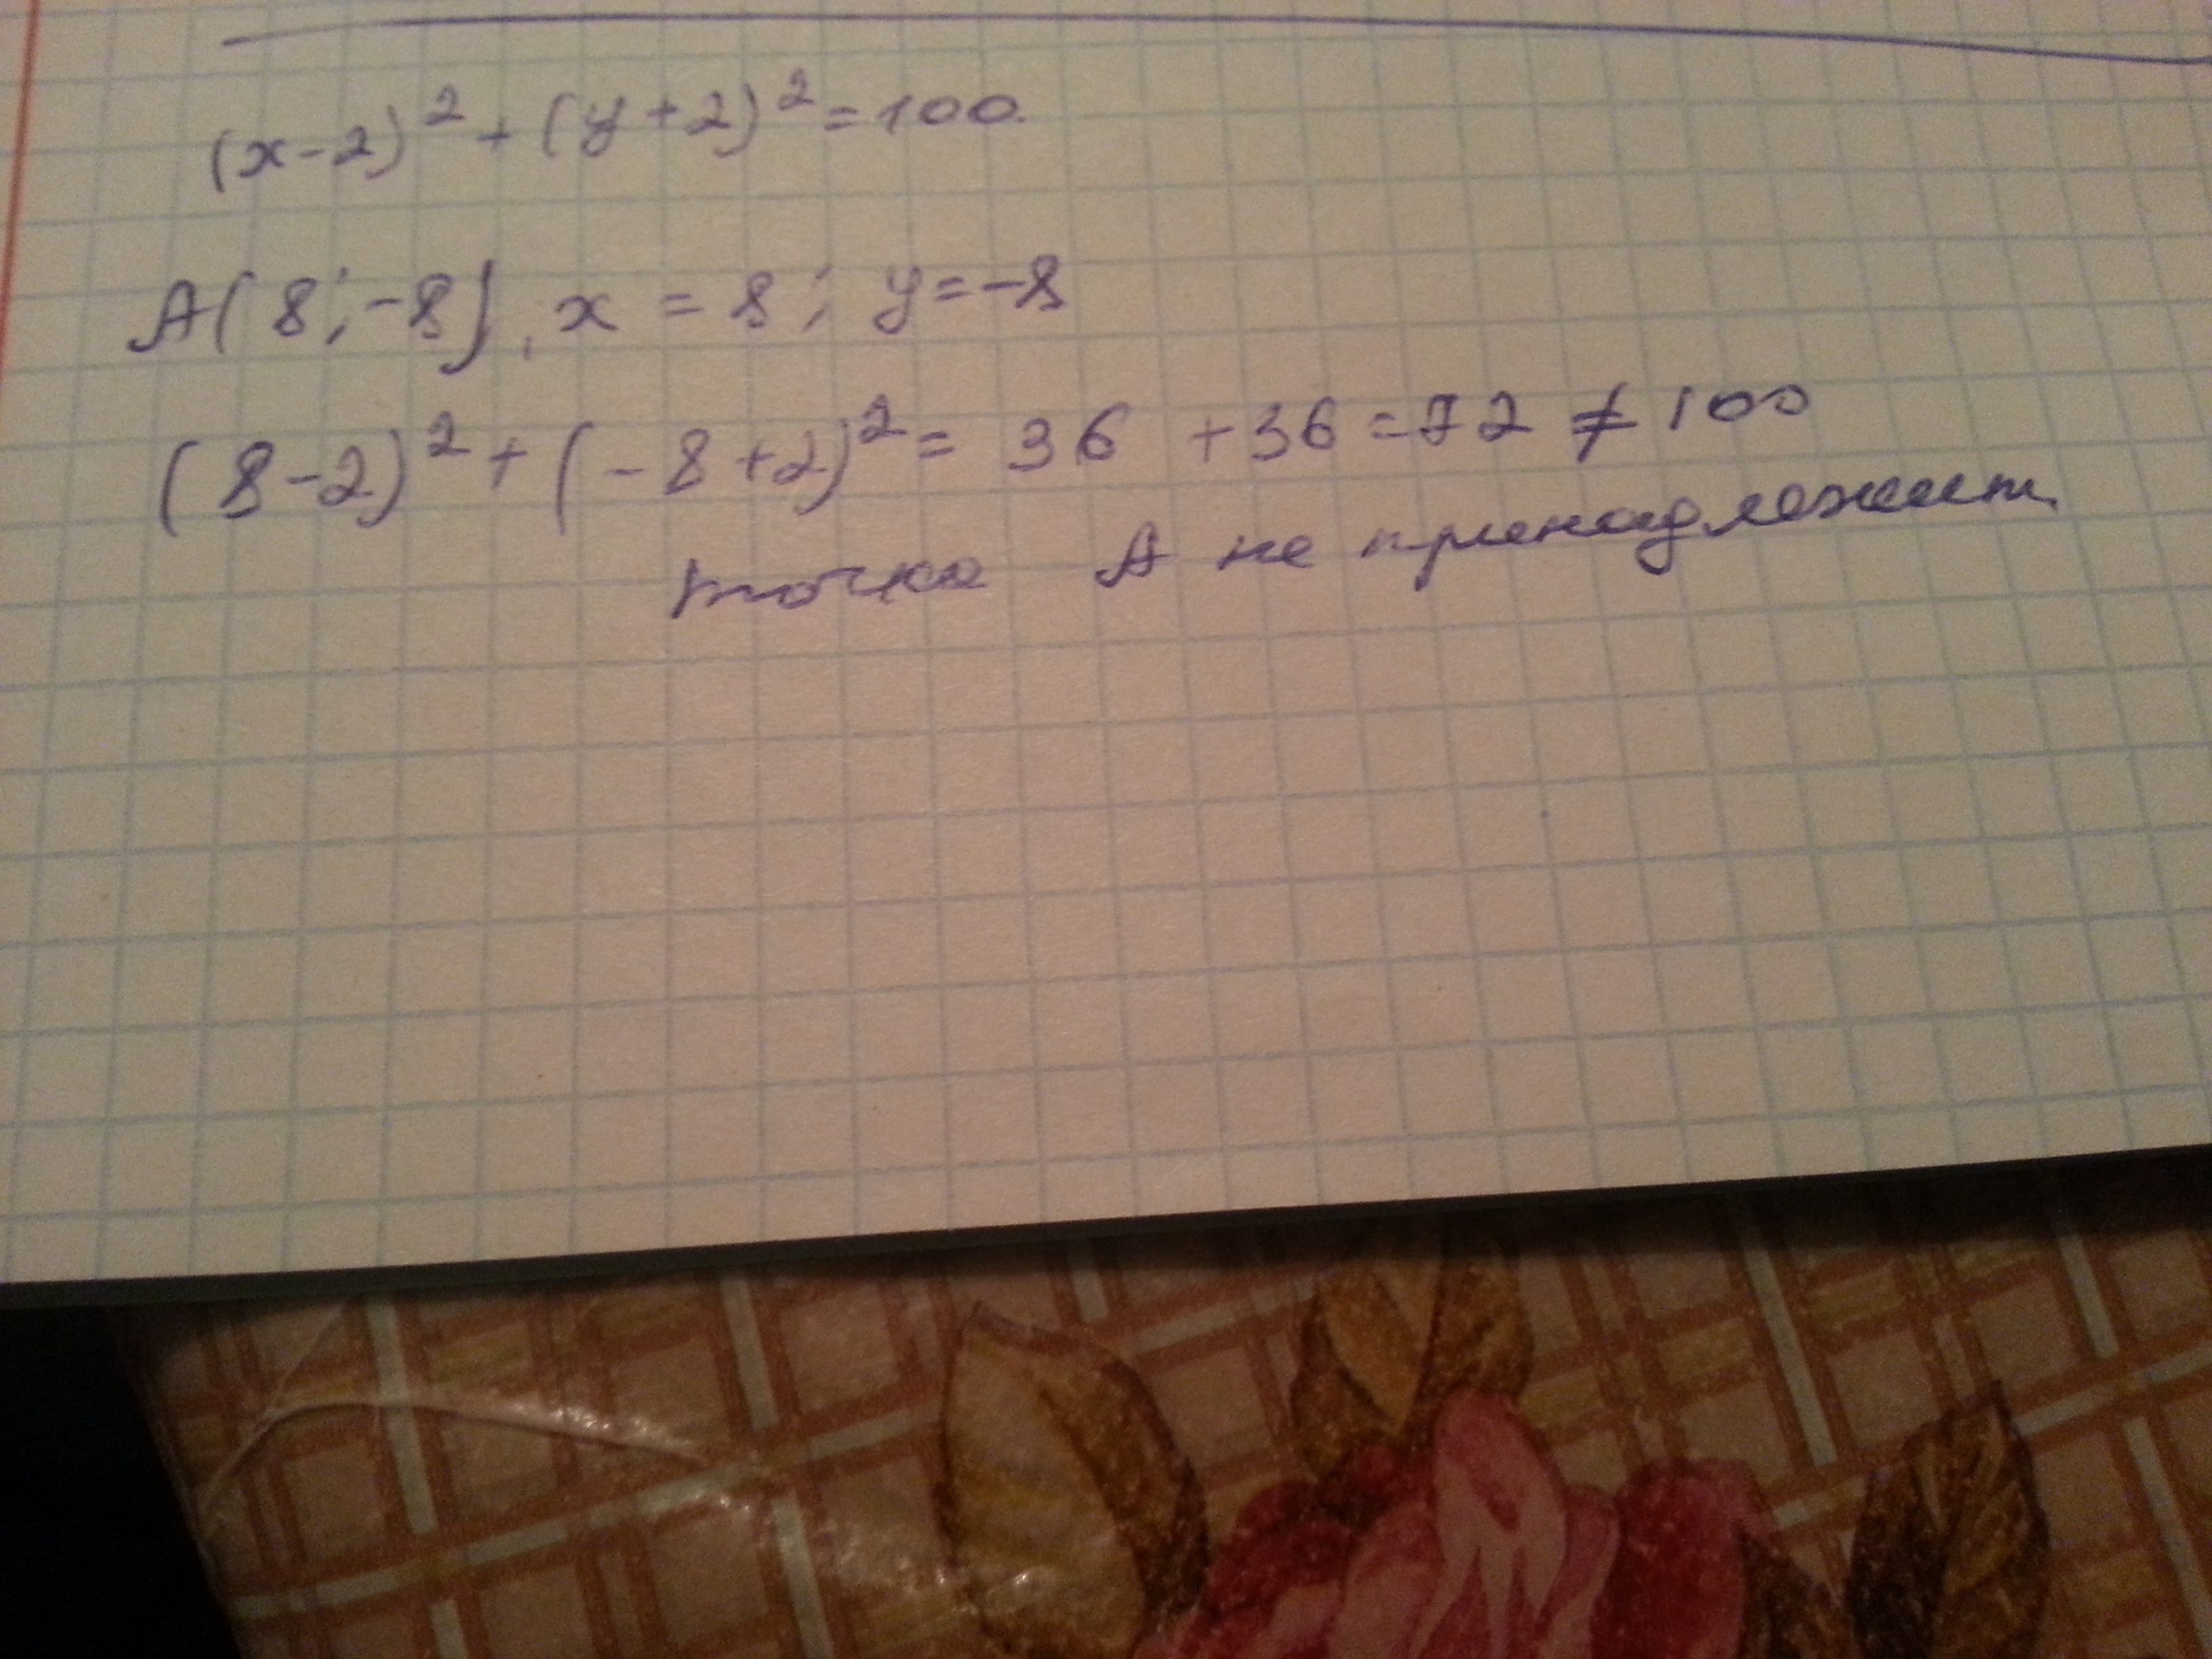 (x-2)² + (y+2)² = 100.
A(8;-8), x = 8; y = -8
(8-2)² + (-8+2)² = 36 + 36 = 72 ≠ 100
точка А не принадлежит